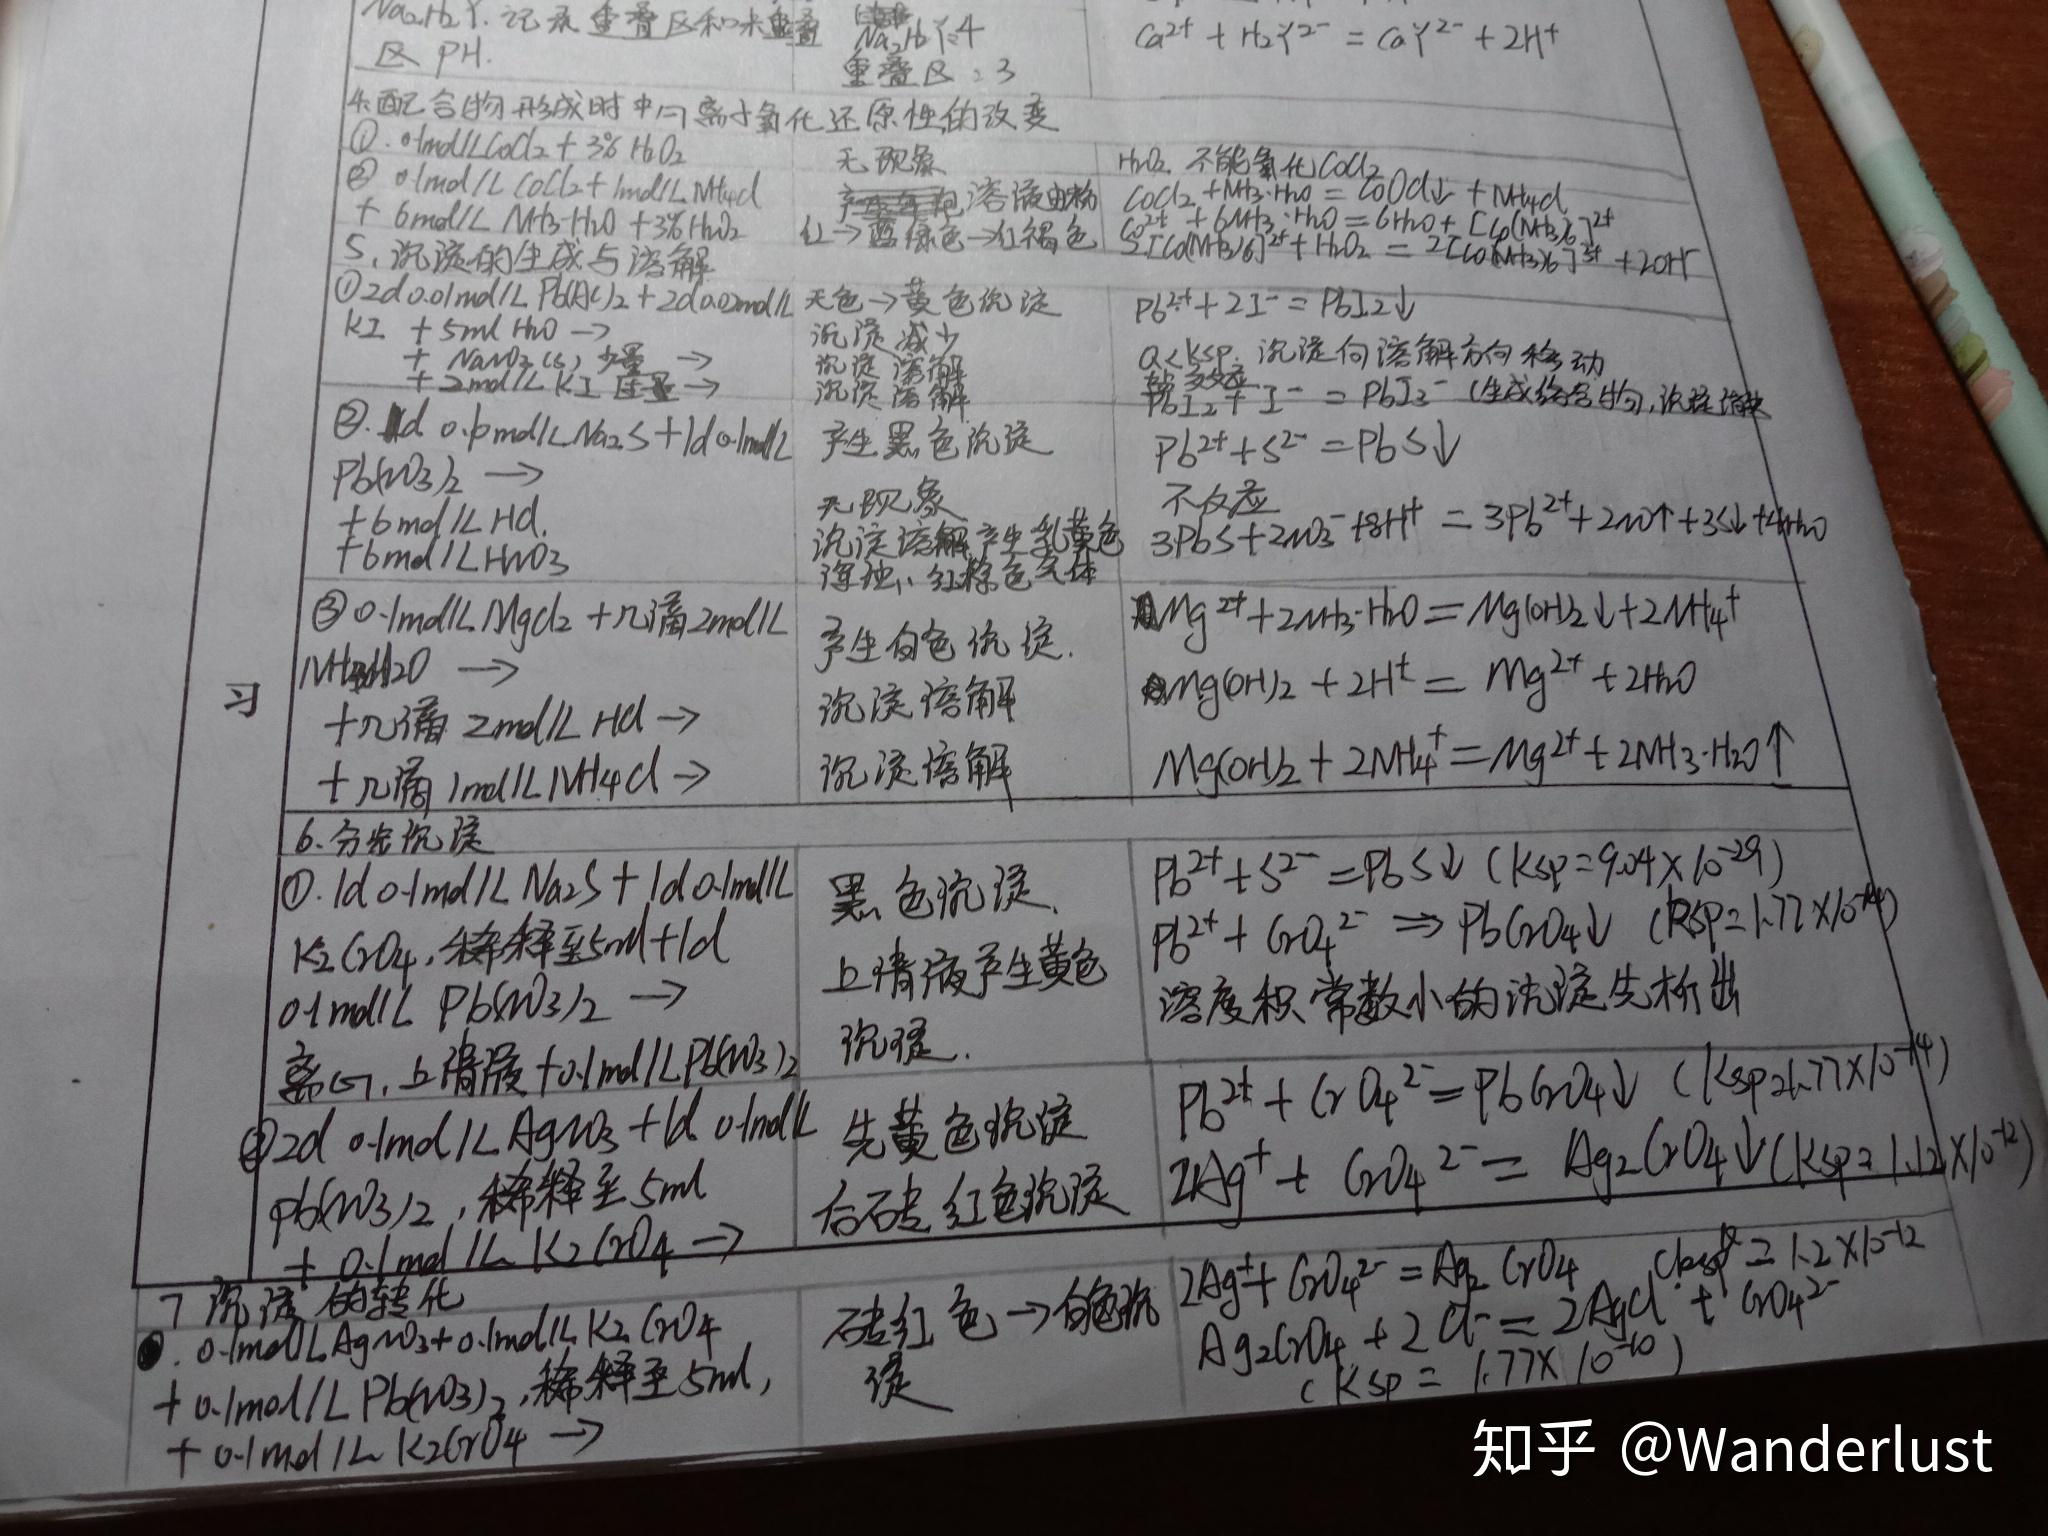 Na2H2Y.记录重叠区和未重叠
区 PH.
Na2H2Y=4
重叠区=3
Ca2+ + H2Y2- = CaY2- + 2H+
4.配合物形成时中心离子氧化还原性的改变
①. 0.1mol/L CoCl2 + 3% H2O2
无现象
H2O2 不能氧化CoCl2
② 0.1mol/L CoCl2 + 1mol/L NH4Cl
+ 6mol/L NH3·H2O + 3% H2O2
溶液由粉
红→蓝绿色→红褐色
CoCl2 + NH3·H2O = CoOCl↓ + NH4Cl
Co2+ + 6NH3·H2O = 6H2O + [Co(NH3)6]2+
2[Co(NH3)6]2+ + H2O2 = 2[Co(NH3)6]3+ + 2OH-
5、沉淀的生成与溶解
① 2d 0.01mol/L Pb(Ac)2 + 2d 0.02mol/L
KI + 5ml H2O →
+ NaNO3(s) 少量 →
+ 2mol/L KI 过量 →
无色→黄色沉淀
沉淀减少
沉淀溶解
沉淀溶解
Pb2+ + 2I- = PbI2↓
Q<Ksp. 沉淀向溶解方向移动
盐效应
PbI2 + I- = PbI3- (生成络合物,沉淀溶解
②. 1d 0.1mol/L Na2S + 1d 0.1mol/L
Pb(NO3)2 →
+6mol/L HCl.
+6mol/L HNO3
产生黑色沉淀
无现象
沉淀溶解产生乳黄色
浑浊、红棕色气体
Pb2+ + S2- = PbS↓
不反应
3PbS + 2NO3- + 8H+ = 3Pb2+ + 2NO↑ + 3S↓ + 4H2O
③ 0.1mol/L MgCl2 + 几滴2mol/L
NH3·H2O →
+几滴 2mol/L HCl →
+几滴 1mol/L NH4Cl →
产生白色沉淀.
沉淀溶解
沉淀溶解
Mg2+ + 2NH3·H2O = Mg(OH)2↓ + 2NH4+
Mg(OH)2 + 2H+ = Mg2+ + 2H2O
Mg(OH)2 + 2NH4+ = Mg2+ + 2NH3·H2O↑
习
6.分步沉淀
①. 1d 0.1mol/L Na2S + 1d 0.1mol/L
K2CrO4,稀释至5ml+1d
0.1mol/L Pb(NO3)2 →
离心,上清液+0.1mol/L Pb(NO3)2
黑色沉淀、
上清液产生黄色
沉淀.
Pb2+ + S2- = PbS↓ (Ksp=9.04×10-29)
Pb2+ + CrO42- ⇒ PbCrO4↓ (Ksp=1.77×10-14)
溶度积常数小的沉淀先析出
② 2d 0.1mol/L AgNO3 + 1d 0.1mol/L
Pb(NO3)2,稀释至5ml
+ 0.1mol/L K2CrO4 →
先黄色沉淀
后砖红色沉淀
Pb2+ + CrO42- = PbCrO4↓ (Ksp=1.77×10-14)
2Ag+ + CrO42- = Ag2CrO4↓ (Ksp=1.12×10-12)
7 沉淀的转化
0.1mol/L AgNO3 + 0.1mol/L K2CrO4
+ 0.1mol/L Pb(NO3)2,稀释至5ml,
+ 0.1mol/L K2CrO4 →
砖红色→白色沉
淀
2Ag+ + CrO42- = Ag2CrO4 (Ksp=1.2×10-12
Ag2CrO4 + 2Cl- = 2AgCl + CrO42-
(Ksp = 1.77×10-10)
知乎 @Wanderlust